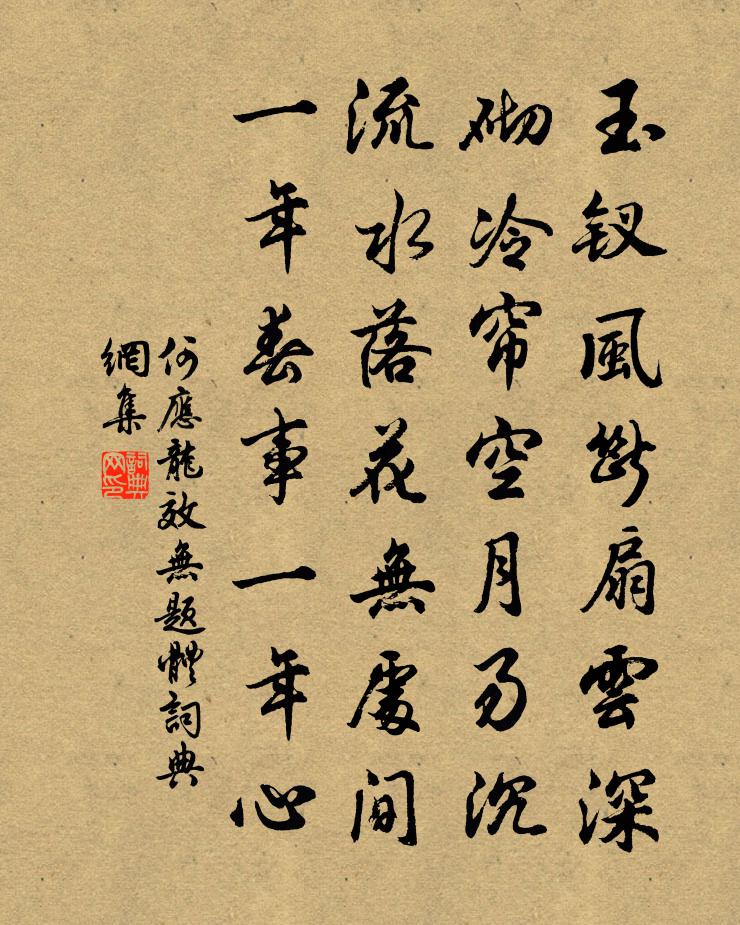 玉釵風斷扇雲深
砌冷帘空月易沉
流水落花無處间
一年春事一年心
何應龍效無题體詞典
網集
詞典网印